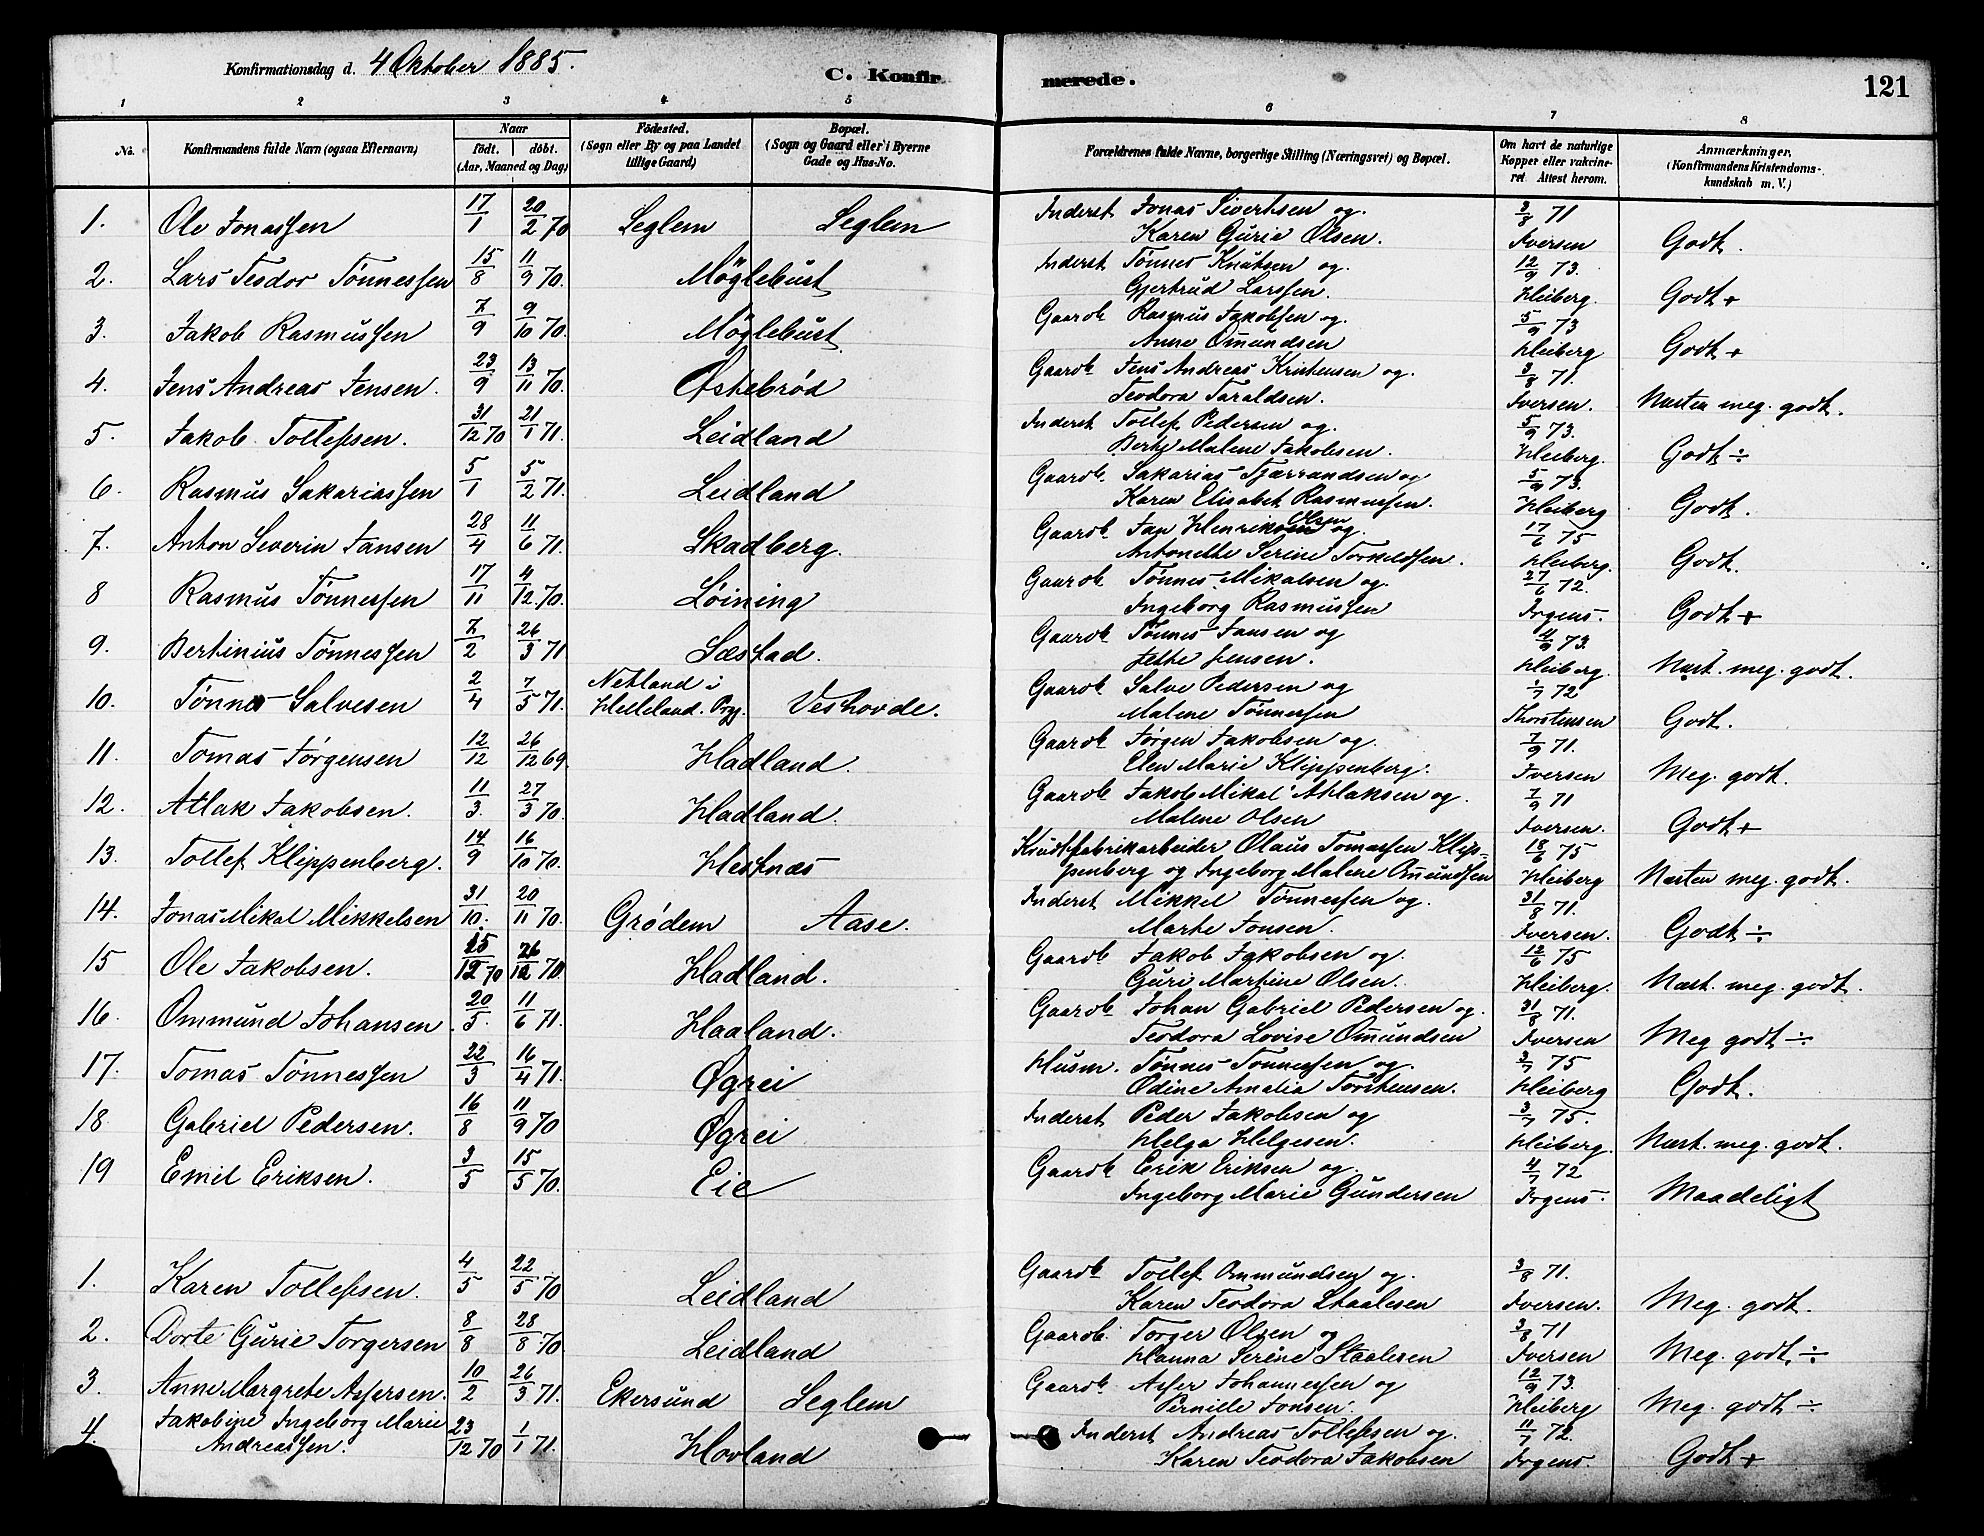 Konfirmationsdag d. 4 Oktober 1885.
C. Konfirmerede.
121
1 2 3 4 5 6 7 8
No. Konfirmandens fulde Navn (ogsaa Efternavn) Naar födt. döbt. (Aar, Maaned og Dag) Födested. (Sogn eller By og paa Landet tillige Gaard) Bopæl. (Sogn og Gaard eller i Byerne Gade og Hus-No. Forældrenes fulde Navne, borgerlige Stilling (Næringsvei) og Bopæl. Om havt de naturlige Kopper eller vakcineret Attest herom. Anmærkninger. (Konfirmandens Kristendomskundskab m. V.)
1. Ole Jonassen 17/1 20/2 70 Seglem Seglem Inderst Jonas Sivertsen og 3/8 71
Karen Gurie Olsen. Iversen Godt.
2. Lars Teodor Tönnessen 15/8 11/9 70. Möglebust Inderst Tönnes Knutsen og 12/9 73.
Gjertrud Larssen. Heiberg. Godt +
3. Jakob Rasmussen 7/9 9/10 70. Möglebust Gaardb Rasmus Jakobsen og. 5/9 73
Anne Omundsen Heiberg Godt +
4. Jens Andreas Jensen. 23/9 13/11 70. Østebrød Gaardb Jens Andreas Kristensen og. 3/8 71.
Teodora Taraldsen. Iversen. Næsten meg. godt.
5. Jakob Tollefsen. 31/12 70 21/1 71. Leidland Inderst Tollef Pedersen og. 5/9 73.
Berte Malene Jakobsen. Heiberg. Godt ÷
6. Rasmus Sakariassen 5/1 5/2 71. Leidland Gaardb. Sakarias Tjærrandsen og 5/9 73.
Karen Elisabet Rasmussen. Heiberg Godt.
7. Anton Severin Jansen 28/4 11/6 71. Skadberg. Gaardb Jan Henrik Olsen og 17/6 75
Antonette Serine Torkeldsen. Heiberg. Godt.
8 Rasmus Tønnessen 17/11 4/12 70. Løining Gaardb Tønnes Mikalsen og. 27/6 72.
Ingeborg Rasmussen Irgens. Godt +
9. Bertinius Tønnessen 7/2 26/3 71 Sæstad. Gaardb Tønnes Jansen og 4/9 73.
Jette Jensen. Heiberg. Næst. meg. godt.
10. Tønnes Salvesen 2/4 7/5 71. Netland i Helleland. Prgj. Veshovde. Gaardb Salve Pedersen og 1/7 72
Malene Tønnessen Thorstensen Godt.
11. Tomas Jørgensen 12/12 26/12 69. Hadland. Gaardb Jørgen Jakobsen og. 7/9 71.
Elen Marie Klippenberg. Iversen Meg. godt.
12. Atlak Jakobsen. 11/3. 27/3 70. Hadland. Gaardb Jakob Mikal Atlaksen og. 7/9 71
Malene Olsen Iversen. Godt +
13. Tollef Klippenberg. 14/9 16/10 70. Hestnæs Krudtfabrikarbeider Olaus Tomassen Klip- 18/6 75
penberg og Ingeborg Malene Omundsen Heiberg Næsten meg. godt.
14. Jonas Mikal Mikkelsen 31/10. 20/11 70. Grødem Aase. Inderst Mikkel Tønnessen og. 31/8 71.
Marte Jonsen. Iversen. Godt ÷
15 Ole Jakobsen. 15/12 70 26/12 70 Hadland. Gaardb Jakob Jakobsen og. 12/6 75
Guri Martine Olsen. Heiberg. Næst. meg. godt.
16. Ommund Johansen 20/5. 11/6 71. Haaland. Gaardb Johan Gabriel Pedersen og. 31/8 71.
Teodora Lovise Omundsen Iversen Meg godt ÷
17. Tomas Tønnessen 22/3 16/4 71. Øgrei Husm. Tønnes Tønnessen og. 3/7 75
Odine Amalia Torstensen. Heiberg Godt.
18 Gabriel Pedersen. 16/8 11/9 70 Øgrei Inderst Peder Jakobsen og 3/7 75.
Helga Helgesen. Heiberg. Næst. meg. godt.
19 Emil Eriksen. 3/5 15/5 70. Eie Gaardb Erik Eriksen og. 4/7 72
Ingeborg Marie Gundersen Irgens. Maadeligt
1. Karen Tollefsen. 4/5 22/5 70 Leidland Gaardb Tollef Ommundsen og. 3/8 71.
Karen Teodora Staalesen Iversen. Meg. godt.
2. Dorte Gurie Torgersen 8/8 28/8 70 Leidland Gaardb. Torger Olsen og 3/8 71
Hanna Serine Staalesen Iversen Meg. godt. ÷
3. Anne Margrete Assersen. 10/2 26/3 71. Ekersund Seglem Gaardb Asser Johannessen og 12/9 73.
Pernille Jonsen. Heiberg Meg. godt ÷
4. Jakobine Ingeborg Marie Andreassen. 23/12 70 1/1 71. Hovland Inderst Andreas Tollefsen og. 11/7 72.
Karen Teodora Jakobsen Irgens. Godt +